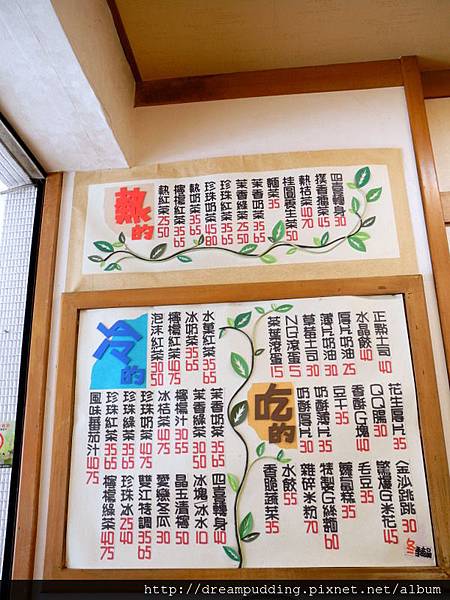 熱的
熱紅茶 25 50
檸檬紅茶 35 65
熱奶茶 35 65
珍珠奶茶 45 80
珍珠紅茶 35 65
茉香綠茶 25 50
茉香奶茶 35 65
麵茶 35
桂圓養生茶 50
熱桔茶 40 70
撲香擂茶 45
四喜轉身 30
冷的
泡沫紅茶 30 50
檸檬紅茶 40 75
冰奶茶 35 65
水菓紅茶 35 65
風味番茄汁 40 75
珍珠紅茶 35 65
珍珠綠茶 35 65
珍珠奶茶 40 75
冰桔茶 40 75
檸檬汁 30 55
茉香綠茶 30 50
茉香奶茶 35 65
檸檬綠茶 40 75
珍珠冰 25 40
雙江特調 35 65
愛戀冬瓜 30 50
晶玉清檸 50
冰塊冰水 10
四喜轉身 40
吃的
茶葉滾蛋 15
NG滾蛋 5
草莓土司 30
薄片奶油 30
厚片奶油 25
水晶餃 40
正點土司 40
奶酥厚片 30
奶酥薄片 35
豆干 35
香酥G塊 40
QQ腸 30
花生厚片 35
香脆蔬菜 35
水餃 55
雜碎米粒 70
特製G絲麵 60
蘿蔔糕 35
毛豆 35
驚爆G米花 45
金沙跳跳 30
http://dreampudding.pixnet.net/album